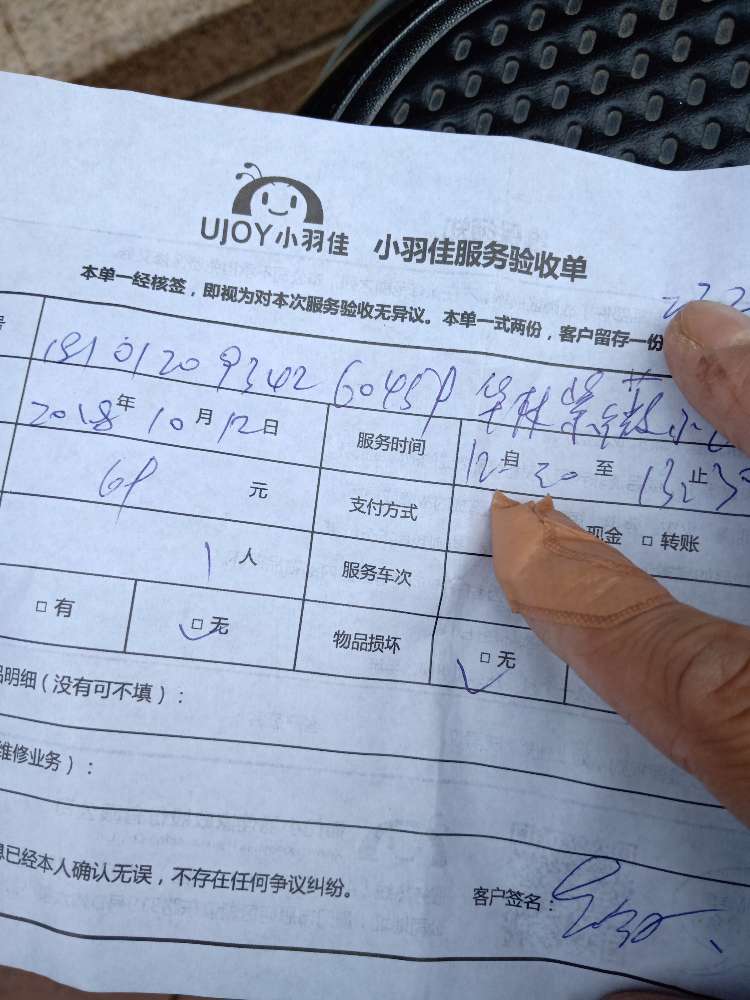 UJOY小羽佳 小羽佳服务验收单
本单一经核签，即视为对本次服务验收无异议。本单一式两份，客户留存一份
号 18101209342 60459
2018年10月12日 服务时间 12自30至13230止
69元 支付方式 现金 □ 转账
1人 服务车次
□ 有 □ 无 物品损坏 □ 无
品明细（没有可不填）：
维修业务）：
息已经本人确认无误，不存在任何争议纠纷。
客户签名：